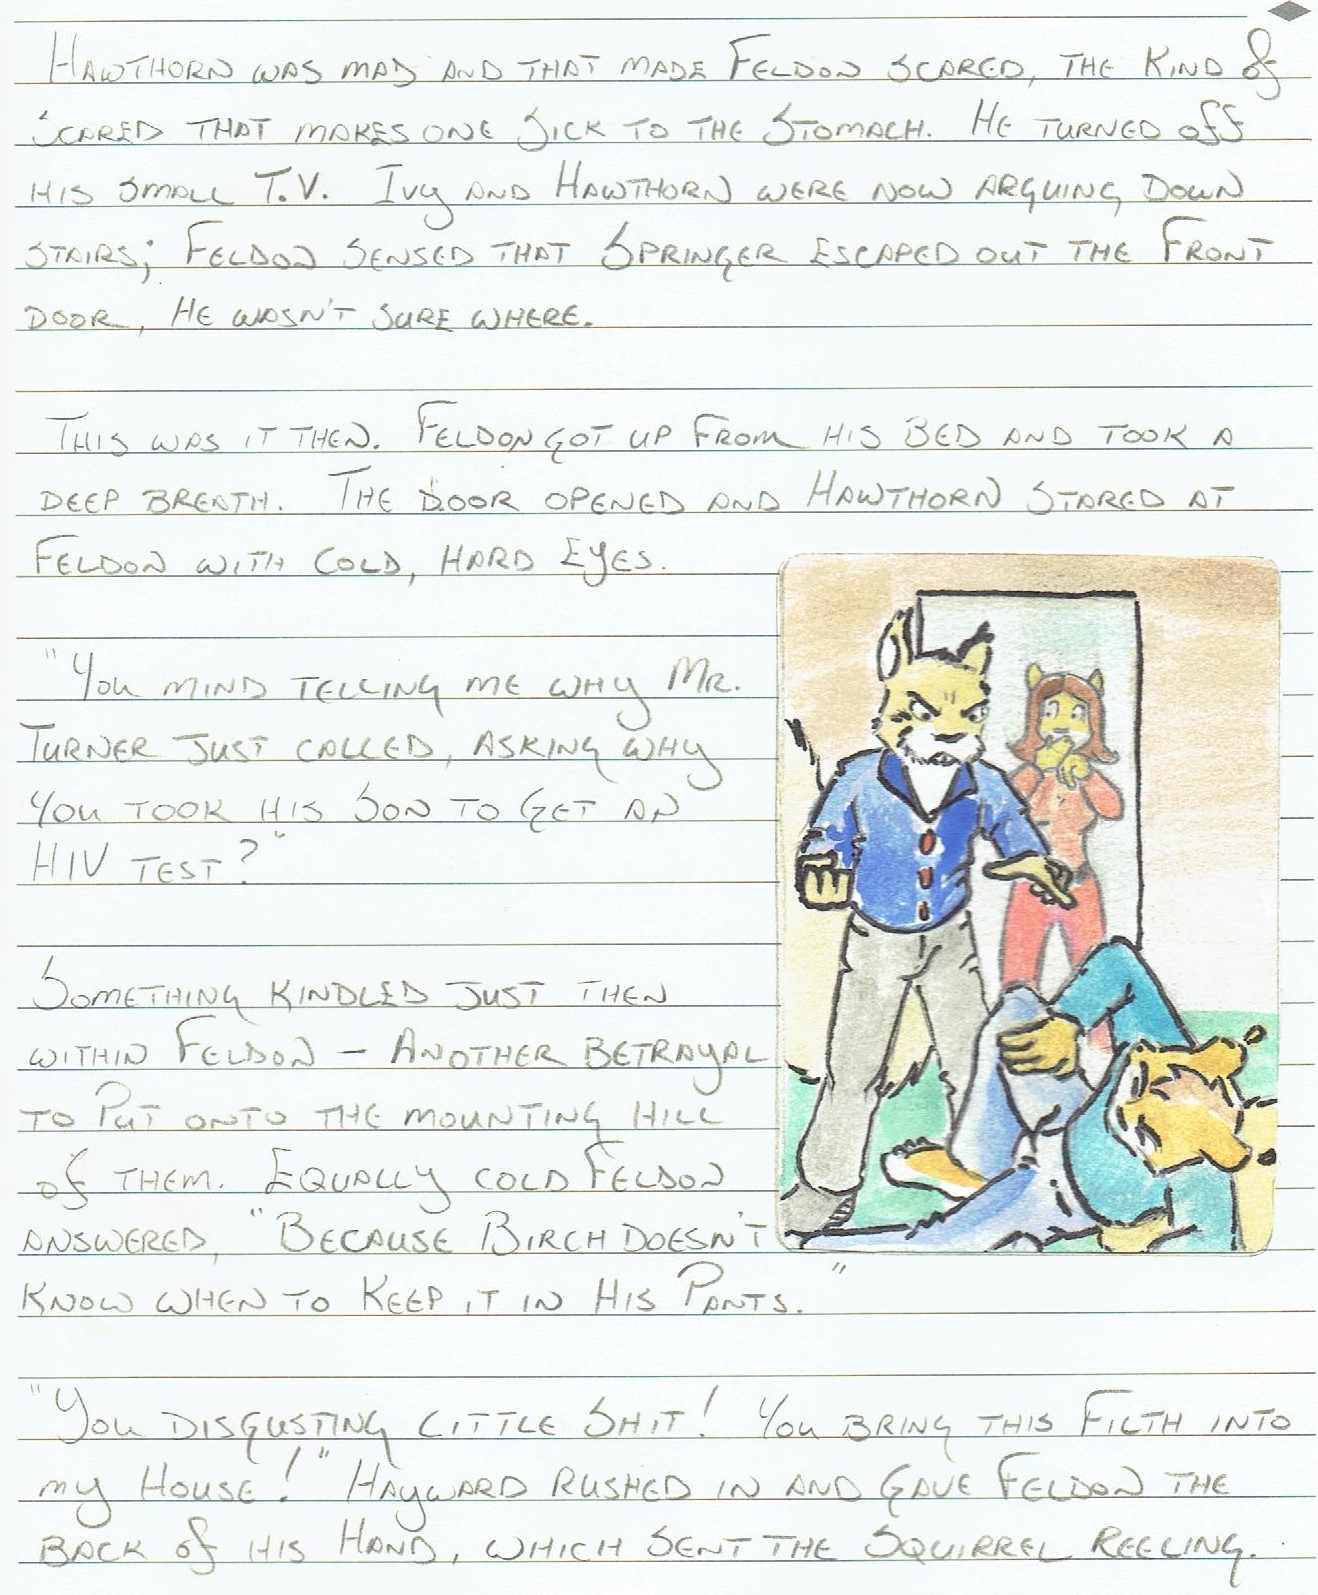 Hawthorn was mad and that made Feldon scared, the kind of
scared that makes one sick to the stomach. He turned off
his small T.V. Ivy and Hawthorn were now arguing down
stairs; Feldon sensed that Springer escaped out the front
door, he wasn't sure where.
This was it then. Feldon got up from his bed and took a
deep breath. The door opened and Hawthorn stared at
Feldon with cold, hard eyes.
"You mind telling me why Mr.
Turner just called, asking why
you took his son to get an
HIV test?"
Something kindled just then
within Feldon – Another betrayal
to put onto the mounting hill
of them. Equally cold Feldon
answered, "Because Birch doesn't
know when to keep it in his pants."
"You disgusting little shit! You bring this filth into
my house!" Hayward rushed in and gave Feldon the
back of his hand, which sent the squirrel reeling.